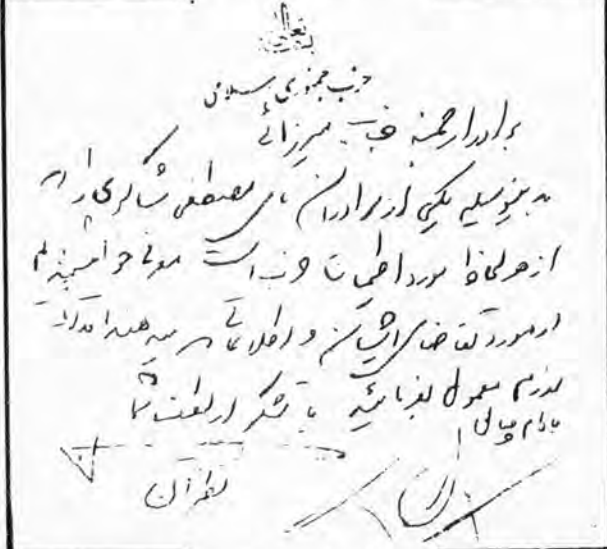 بسمه تعالی
حزب جمهوری اسلامی
برادر ارجمند جناب میرزائی
بدینوسیله یکی از برادران بنام مصطفی شاکری را که
از هر لحاظ مورد اطمینان حزب است معرفی خواهشمندم
در مورد تقاضای ایشان و اطلاعاتی که میدهند اقدامات
لازم معمول بفرمائید با تشکر از لطف شما
والسلام